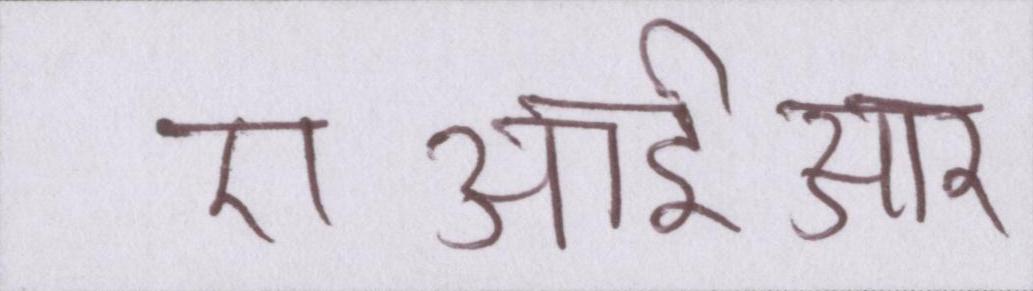 ए आई आर